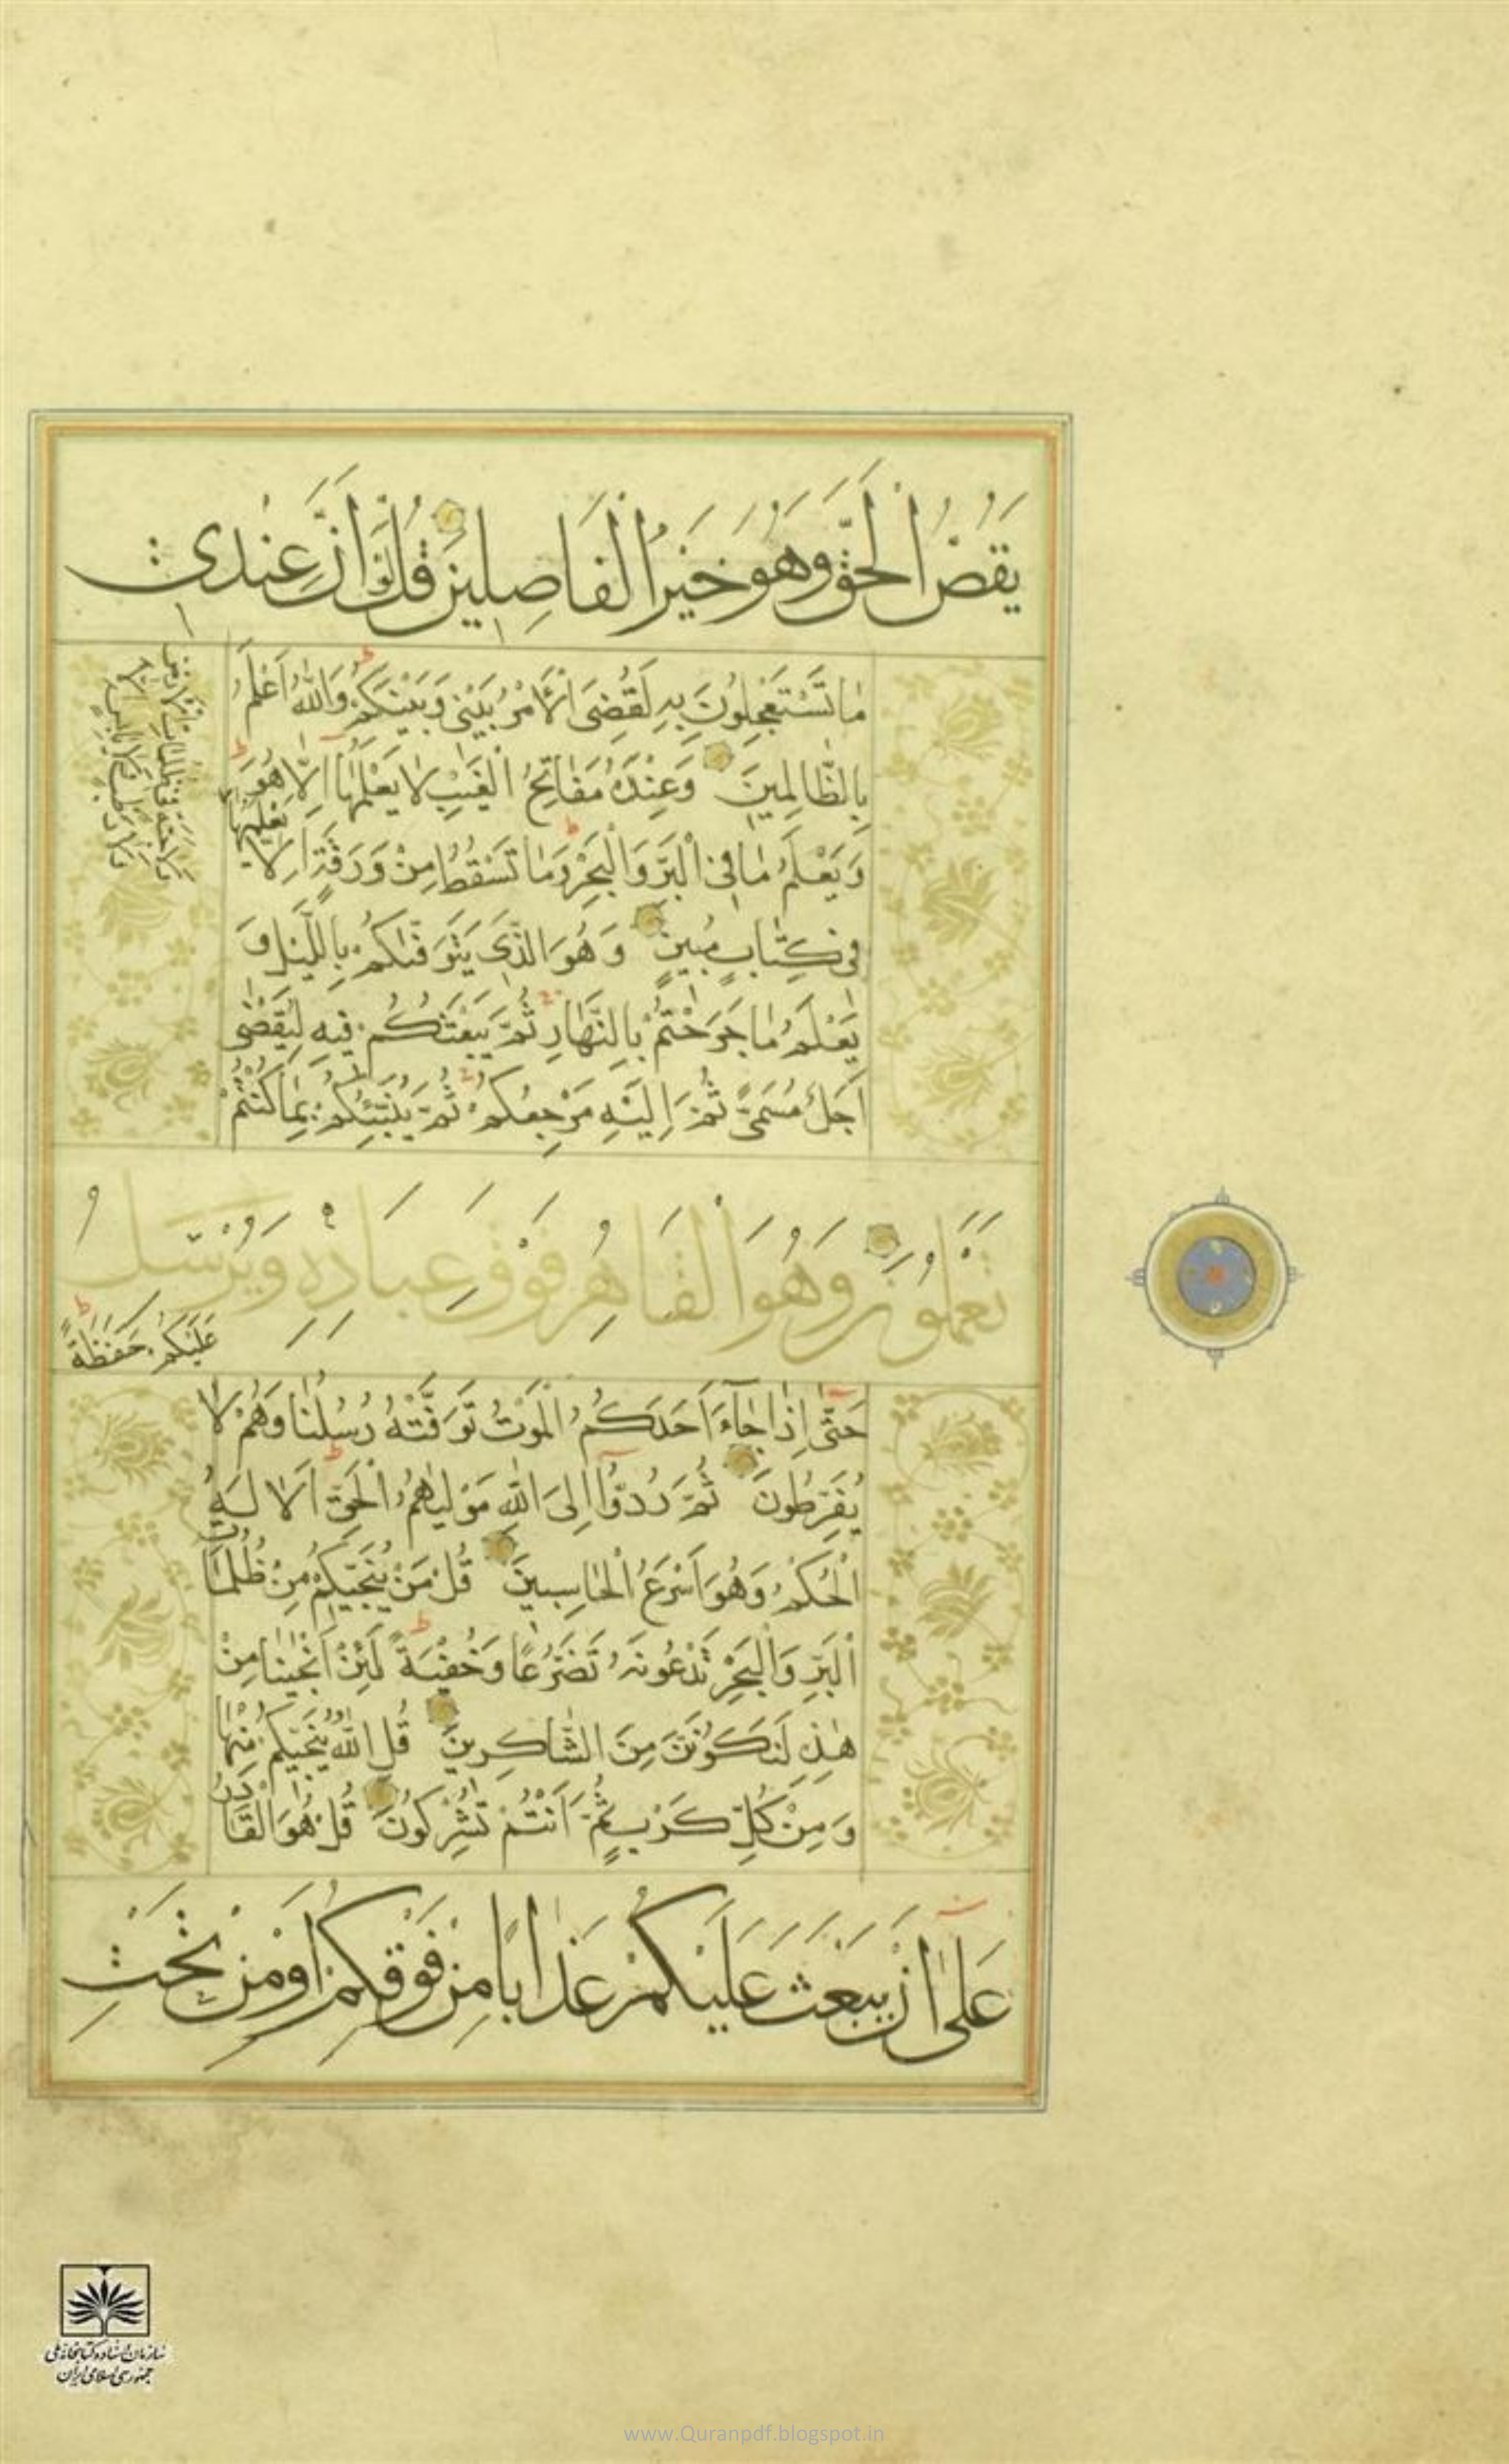 يَقُصُّ الْحَقَّ وَهُوَ خَيْرُ الْفَاصِلِينَ قُلْ لَوْ اَنَّ عِنْدِى
مَا تَسْتَعْجِلُونَ بِهِ لَقُضِىَ الْاَمْرُ بَيْنِى وَبَيْنَكُمْ وَاللّٰهُ اَعْلَمُ
بِالظَّالِمِينَ وَعِنْدَهُ مَفَاتِحُ الْغَيْبِ لَا يَعْلَمُهَا اِلَّا هُوَ
وَيَعْلَمُ مَا فِى الْبَرِّ وَالْبَحْرِ وَمَا تَسْقُطُ مِنْ وَرَقَةٍ اِلَّا يَعْلَمُهَا
وَلَا حَبَّةٍ فِى ظُلُمَاتِ الْاَرْضِ
وَلَا رَطْبٍ وَلَا يَابِسٍ اِلَّا
فِى كِتَابٍ مُبِينٍ وَهُوَ الَّذِى يَتَوَفّٰيكُمْ بِاللَّيْلِ وَ
يَعْلَمُ مَا جَرَحْتُمْ بِالنَّهَارِ ثُمَّ يَبْعَثُكُمْ فِيهِ لِيُقْضٰى
اَجَلٌ مُسَمًّى ثُمَّ اِلَيْهِ مَرْجِعُكُمْ ثُمَّ يُنَبِّئُكُمْ بِمَا كُنْتُمْ
تَعْمَلُونَ وَهُوَ الْقَاهِرُ فَوْقَ عِبَادِهِ وَيُرْسِلُ
عَلَيْكُمْ حَفَظَةً
حَتّٰى اِذَا جَآءَ اَحَدَكُمُ الْمَوْتُ تَوَفَّتْهُ رُسُلُنَا وَهُمْ لَا
يُفَرِّطُونَ ثُمَّ رُدُّوٓا اِلَى اللّٰهِ مَوْلٰيهُمُ الْحَقِّ اَلَا لَهُ
الْحُكْمُ وَهُوَ اَسْرَعُ الْحَاسِبِينَ قُلْ مَنْ يُنَجِّيكُمْ مِنْ ظُلُمَاتِ
الْبَرِّ وَالْبَحْرِ تَدْعُونَهُ تَضَرُّعًا وَخُفْيَةً لَئِنْ اَنْجَيْنَا مِنْ
هٰذِهِ لَنَكُونَنَّ مِنَ الشَّاكِرِينَ قُلِ اللّٰهُ يُنَجِّيكُمْ مِنْهَا
وَمِنْ كُلِّ كَرْبٍ ثُمَّ اَنْتُمْ تُشْرِكُونَ قُلْ هُوَ الْقَادِرُ
عَلٰىٓ اَنْ يَبْعَثَ عَلَيْكُمْ عَذَابًا مِنْ فَوْقِكُمْ اَوْ مِنْ تَحْتِ
سازمان اسناد و کتابخانه ملی
جمهوری اسلامی ایران
www.Quranpdf.blogspot.in